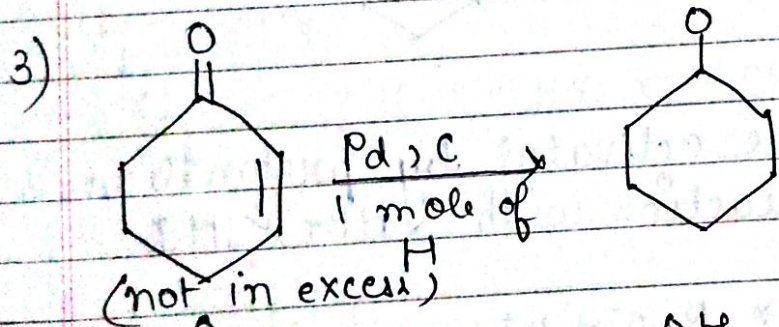 3)
O
O
Pd, C
1 mole of
H
(not in excess)